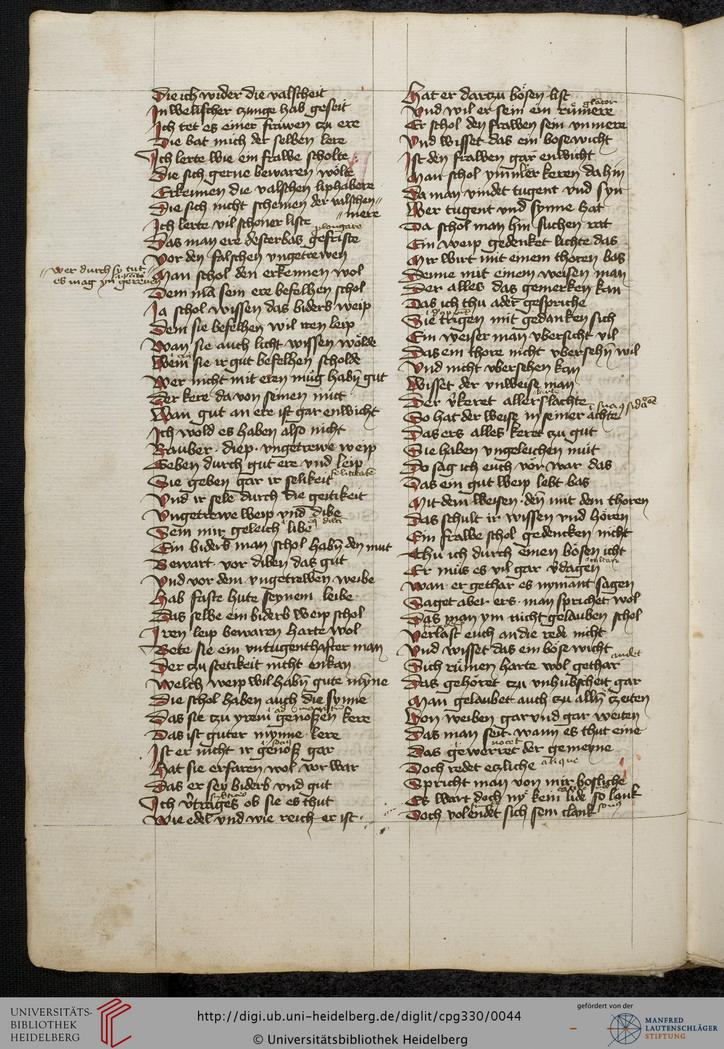 Die ich wider die valscheit
In welischer czunge hab geseit
Ich tet es einer frawen czu ere
Die bat mich der selben lere
Ich lerte wie ein frawe scholte
Die sich gerne bewaren wolte
Erkennen die valschen liphabere
Die sich nicht scheinen der valschen
mere
Ich lerte vil schoner liste
Das man ere desterbas gefriste
Vor den falschen vngetrewen
wer durch sy tut
es mag yn gerewen
Man schol den erkennen wol
Dem man sein ere befelhen schol
Ja schol wissen das biders weip
Dem sie befelhen wil iren leip
Wan sie auch licht wissen wolde
Wem sie ir gut befelhen scholde
Wer nicht mit eren mug habn gut
Der kere da von seinen mut
Wan gut an ere ist gar enwicht
Ich wold es haben also nicht
Rauber diep vngetrewe weip
Geben durch gut ere vnd leip
Sie geben gar ir selikeit
Vnd ir sele durch die geitikeit
Vngetrewe weip vnd dibe
Sein mir geleich libe
Ein biders man schol habn den mut
Bewart vor diben das gut
Vnd vor dem vngetrewen weibe
Hab faste hute seynem leibe
Das selbe ein biders weip schol
Iren leip bewaren harte wol
Bete sie ein vntugenthafter man
Der czu stetikeit nicht enkan
Welch weip wil habn gute mynne
Die schol haben auch die synne
Das sie czu yrem genoszen kere
Das ist guter mynne lere
Ist er nicht ir genosz gar
Hat sie erfaren wol vor war
Das er sey biders vnd gut
Ich vertrages ob sie es thut
Wie edel vnd wie reich er ist
Hat er dartzu bösen list
Vnd wil er sein ein rumere
Er schol den frawen sein vnmere
Vnd wisset das ein bosewicht
Ist den frawen gar enwicht
Man schol ymmer keren dahin
Da man vindet tugent vnd syn
Wer tugent vnd synne hat
Da schol man hin suchen rat
Ein weip gedenket lichte das
Mir wirt mit einem thoren bas
Denne mit einem weisen man
Der alles das gemerken kan
Das ich thu ader gespriche
Sie trigen mit gedanken sich
Ein weiser man vbersicht vil
Das ein thore nicht vbersehn wil
Vnd nicht vbersehen kan
Wisset der vnweise man
Der verkeret allerslachte
So hat der weise in seiner achte
Das ers alles keret czu gut
Sie haben vngeleichen mut
Do sag ich euch vor war das
Das ein gut weip lebt bas
Mit dem weisen den mit dem thoren
Das schult ir wissen vnd hören
Ein frawe schol gedencken nicht
Thu ich durch einen bösen icht
Er mus es vil gar verdagen
Wan er gethar es nymant sagen
Saget aber ers man sprichet wol
Das man ym nicht gelauben schol
Verlast euch an die rede nicht
Vnd wisset das ein böse wicht
Sich rumen harte wol gethar
Das gehöret czu vnhubscheit gar
Man gelaubet auch czu alln czeiten
Von weiben gar vnd gar weiten
Das man seit wann es thut eine
Das gewerret der gemeyne
Doch redet etzliche
Spricht man von mir bosliche
Es wart doch ny kein lide so lank
Doch volendet sich sein clank
UNIVERSITÄTS-
BIBLIOTHEK
HEIDELBERG
http://digi.ub.uni-heidelberg.de/diglit/cpg330/0044
© Universitätsbibliothek Heidelberg
gefördert von der
MANFRED
LAUTENSCHLÄGER
STIFTUNG